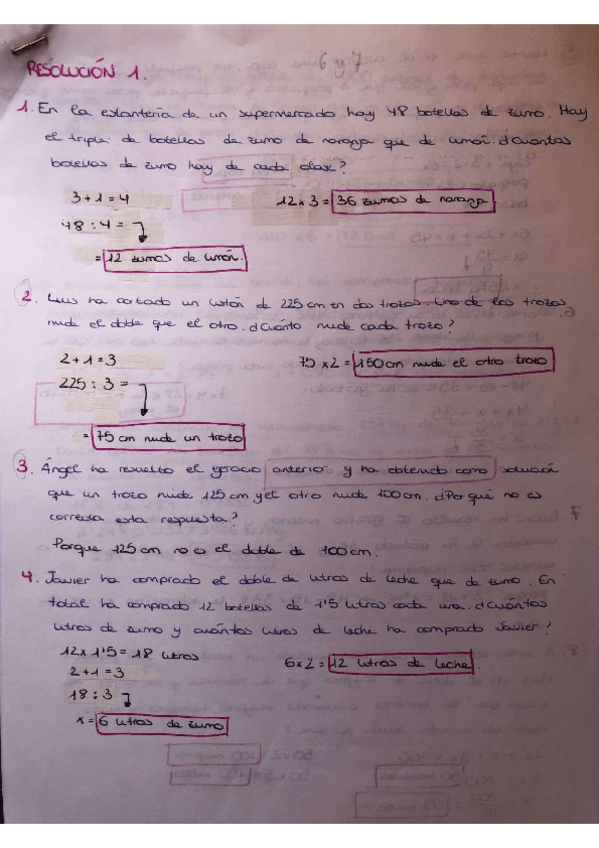 RESOLUCIÓN 1.
1. En la estantería de un supermercado hay 48 botellas de zumo. Hay
el triple de botellas de zumo de naranja que de limón. ¿Cuántas
botellas de zumo hay de cada clase?
3+1=4
12x3 = 36 zumos de naranja
48:4 =
= 12 zumos de limón.
2. Luis ha cortado un listón de 225 cm en dos trozos. Uno de los trozos
mide el doble que el otro. ¿Cuánto mide cada trozo?
2+1=3
75x2 = 150 cm mide el otro trozo
225:3 =
= 75 cm mide un trozo
3. Ángel ha resuelto el ejercicio anterior y ha obtenido como solución
que un trozo mide 125 cm y el otro mide 100 cm. ¿Por qué no es
correcta esta respuesta?
Porque 125 cm no es el doble de 100 cm.
4. Javier ha comprado el doble de litros de leche que de zumo. En
total ha comprado 12 botellas de 1'5 litros cada una. ¿Cuántos
litros de zumo y cuántos litros de leche ha comprado Javier?
12x1'5 = 18 litros
6x2 = 12 litros de leche.
2+1=3
18:3
x = 6 litros de zumo